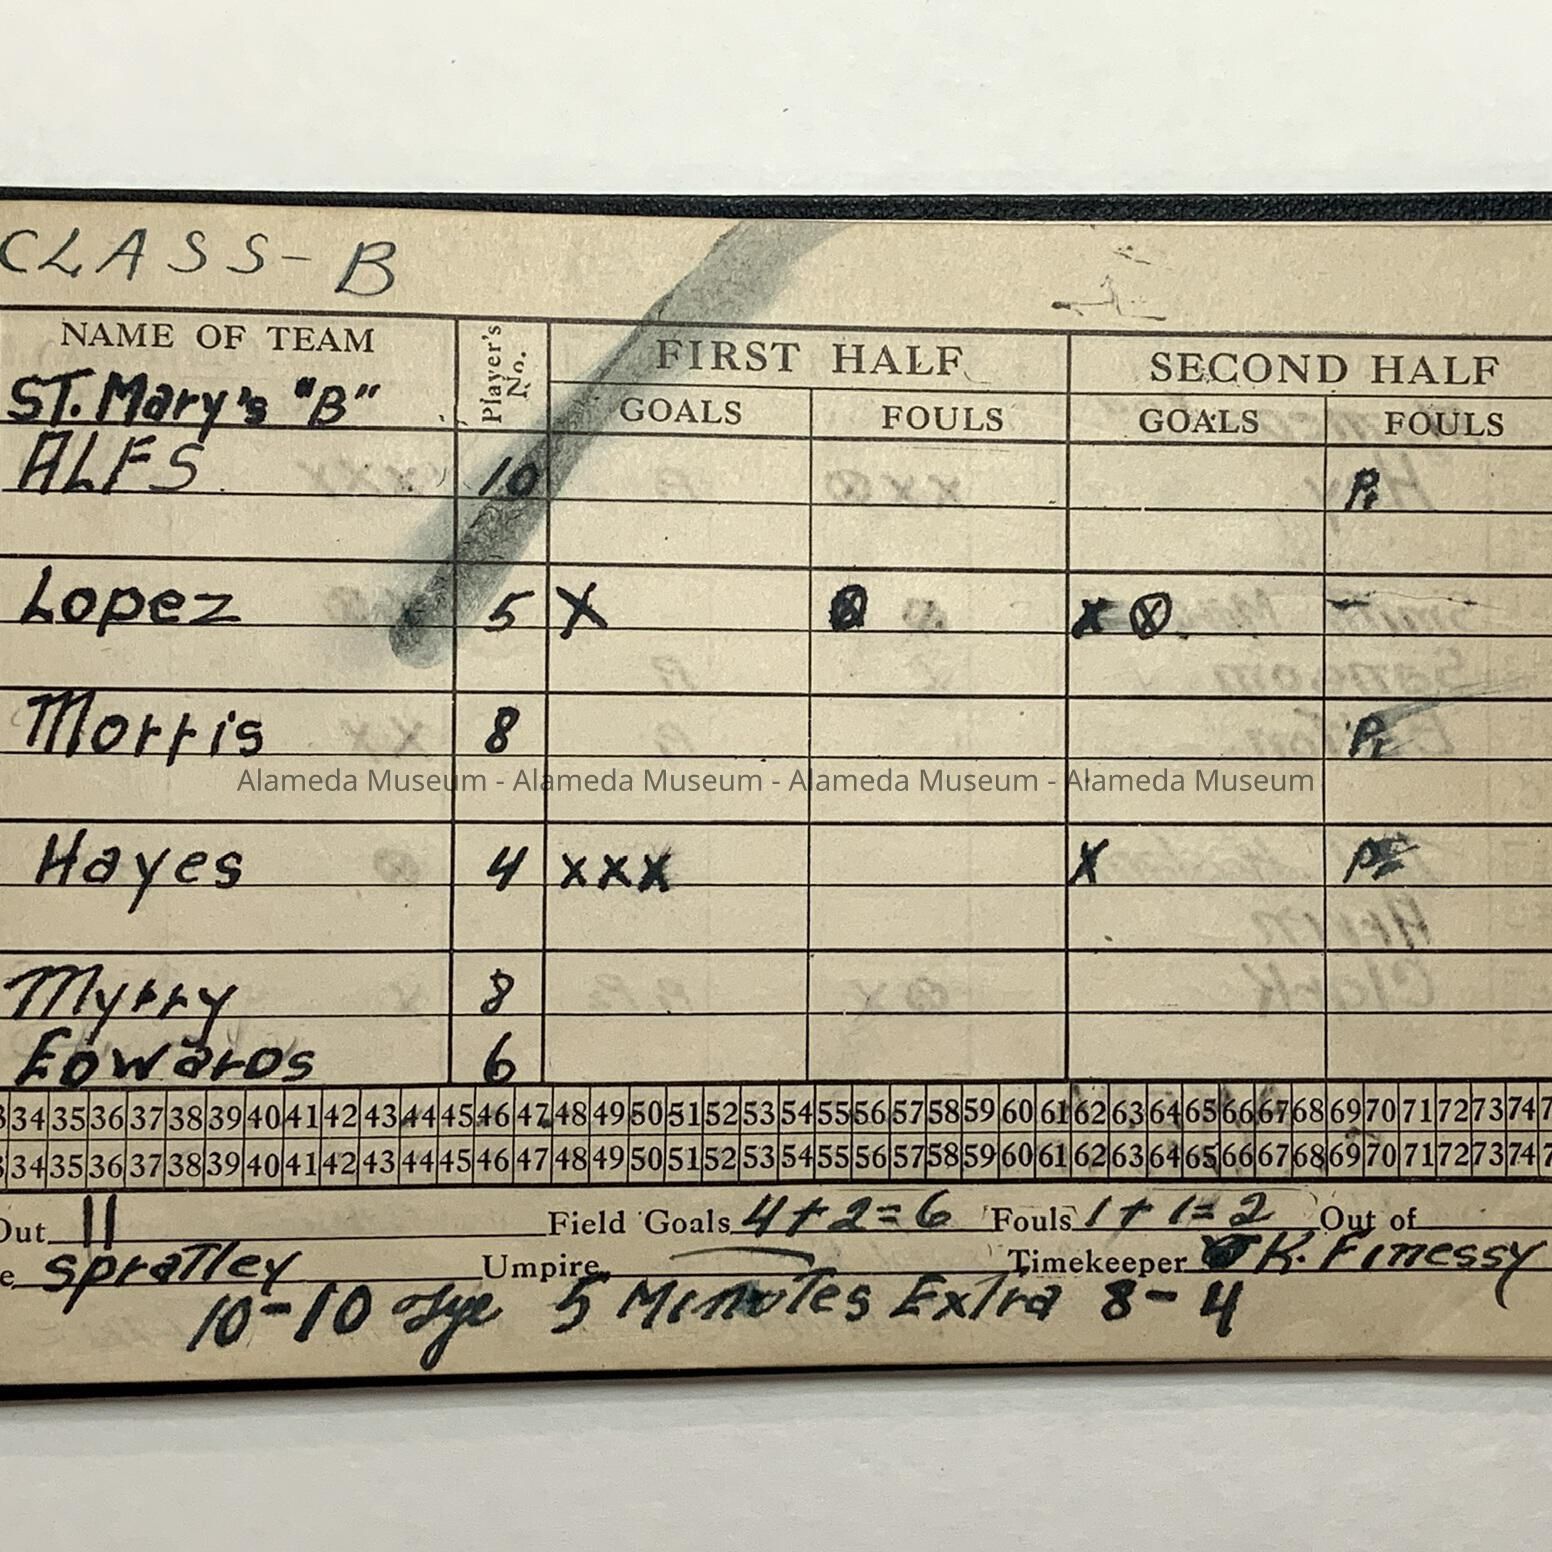 CLASS-B
NAME OF TEAM Player's No. FIRST HALF SECOND HALF
ST. Mary's "B" GOALS FOULS GOALS FOULS
ALFS 10
Lopez 5 X X ⓧ
Morris 8
Alameda Museum - Alameda Museum - Alameda Museum - Alameda Museum
Hayes 4 XXX X
Myrry 8
Edwards 6
34 35 36 37 38 39 40 41 42 43 44 45 46 47 48 49 50 51 52 53 54 55 56 57 58 59 60 61 62 63 64 65 66 67 68 69 70 71 72 73 74
34 35 36 37 38 39 40 41 42 43 44 45 46 47 48 49 50 51 52 53 54 55 56 57 58 59 60 61 62 63 64 65 66 67 68 69 70 71 72 73 74
Out 11 Field Goals 4+2=6 Fouls 1+1=2 Out of
Spratley Umpire Timekeeper K. Finessy
10-10 5 Minutes Extra 8-4